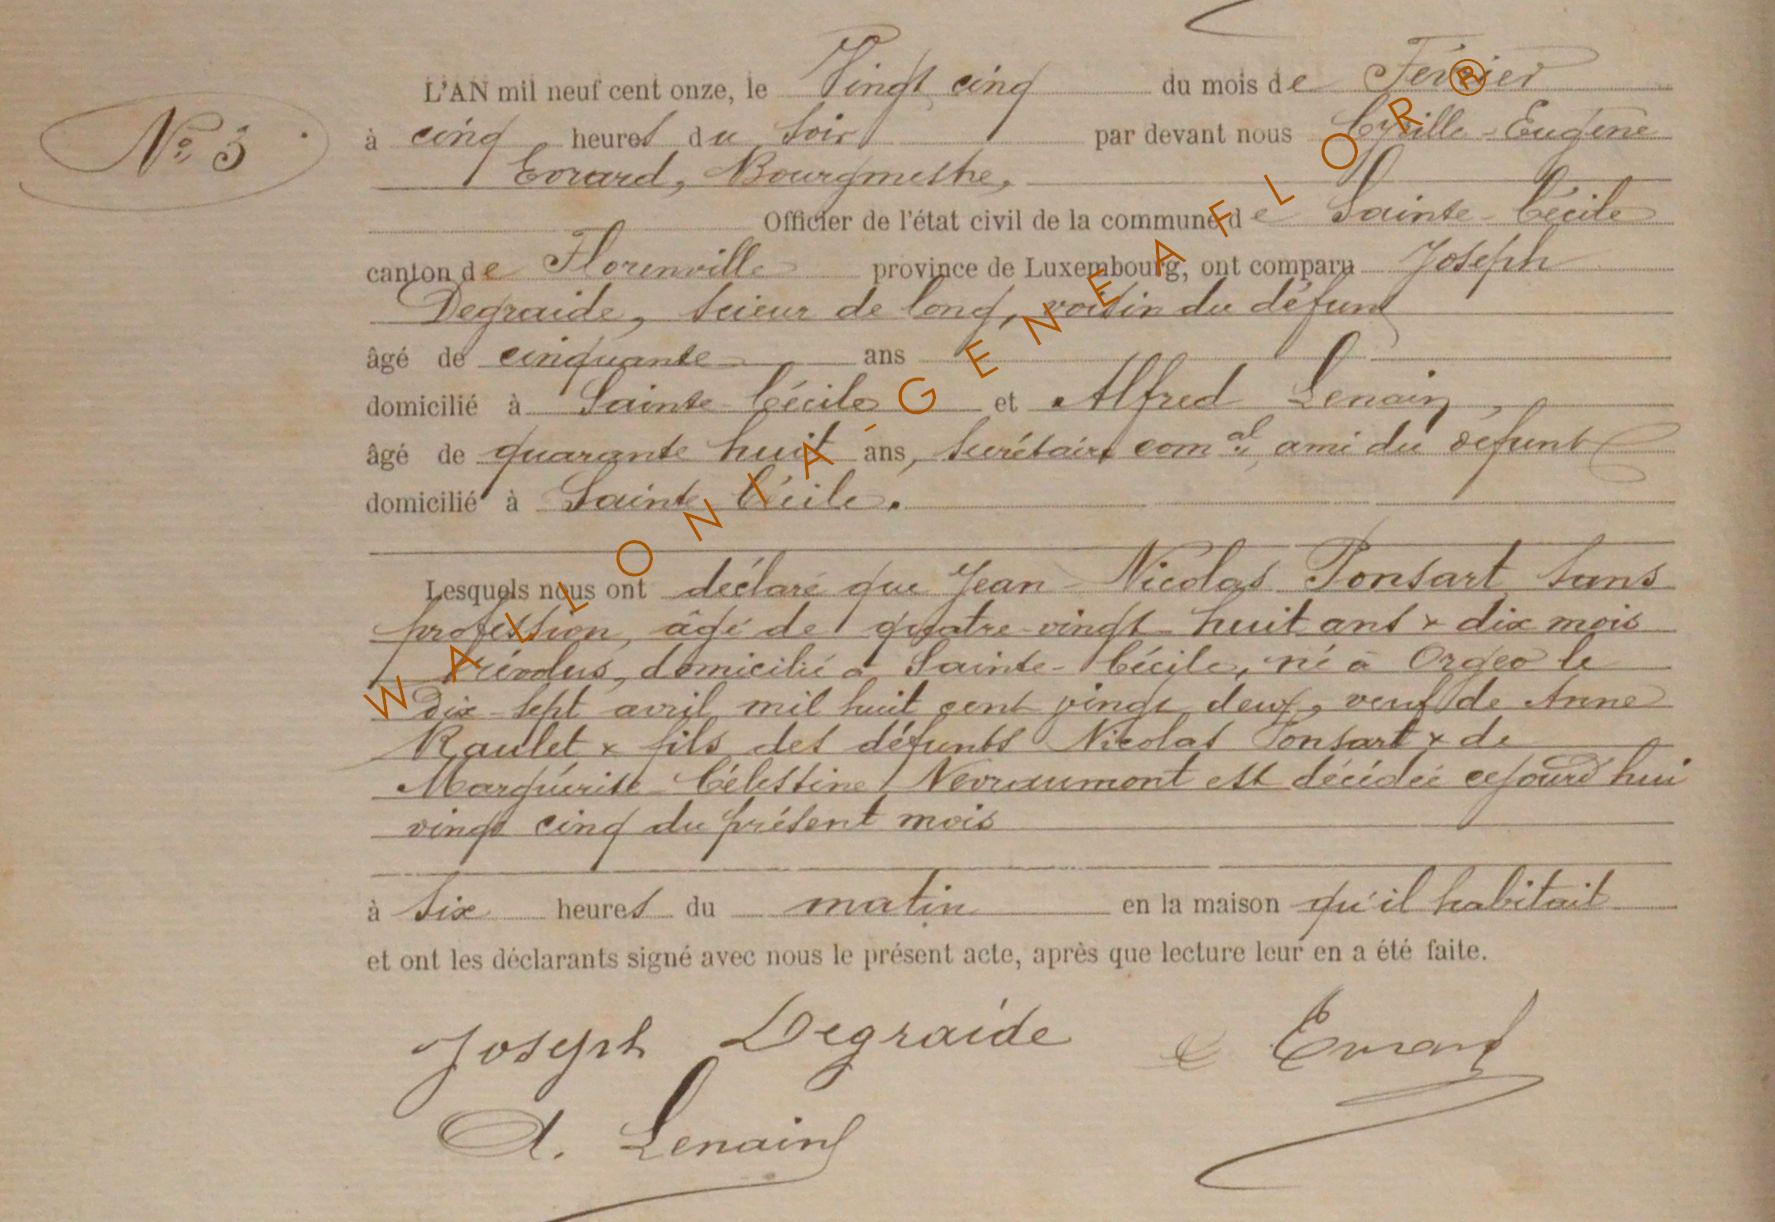 L'AN mil neuf cent onze, le Vingt cinq du mois de Février
N° 3
à cinq heures du soir par devant nous Cyrille-Eugène
Evrard, Bourgmestre,
Officier de l'état civil de la commune de Sainte-Cécile
canton de Florenville province de Luxembourg, ont comparu Joseph
Degraide, scieur de long, voisin du défunt
âgé de cinquante ans
domicilié à Sainte Cécile et Alfred Lenain,
âgé de quarante huit ans, secrétaire comal, ami du défunt
domicilié à Sainte Cécile.
Lesquels nous ont déclaré que Jean Nicolas Ponsart sans
profession, âgé de quatre-vingt huit ans & dix mois
révolus, domicilié à Sainte-Cécile, né à Orgeo le
Dix-sept avril mil huit cent vingt deux, veuf de Anne
Raulet & fils des défunts Nicolas Ponsart & de
Marguérite Célestine Nevraumont est décédé cejourd'hui
vingt cinq du présent mois
à six heures du matin en la maison qu'il habitait
et ont les déclarants signé avec nous le présent acte, après que lecture leur en a été faite.
Joseph Degraide C Evrard
A. Lenain
WALLONIA-GENEAFLOR®